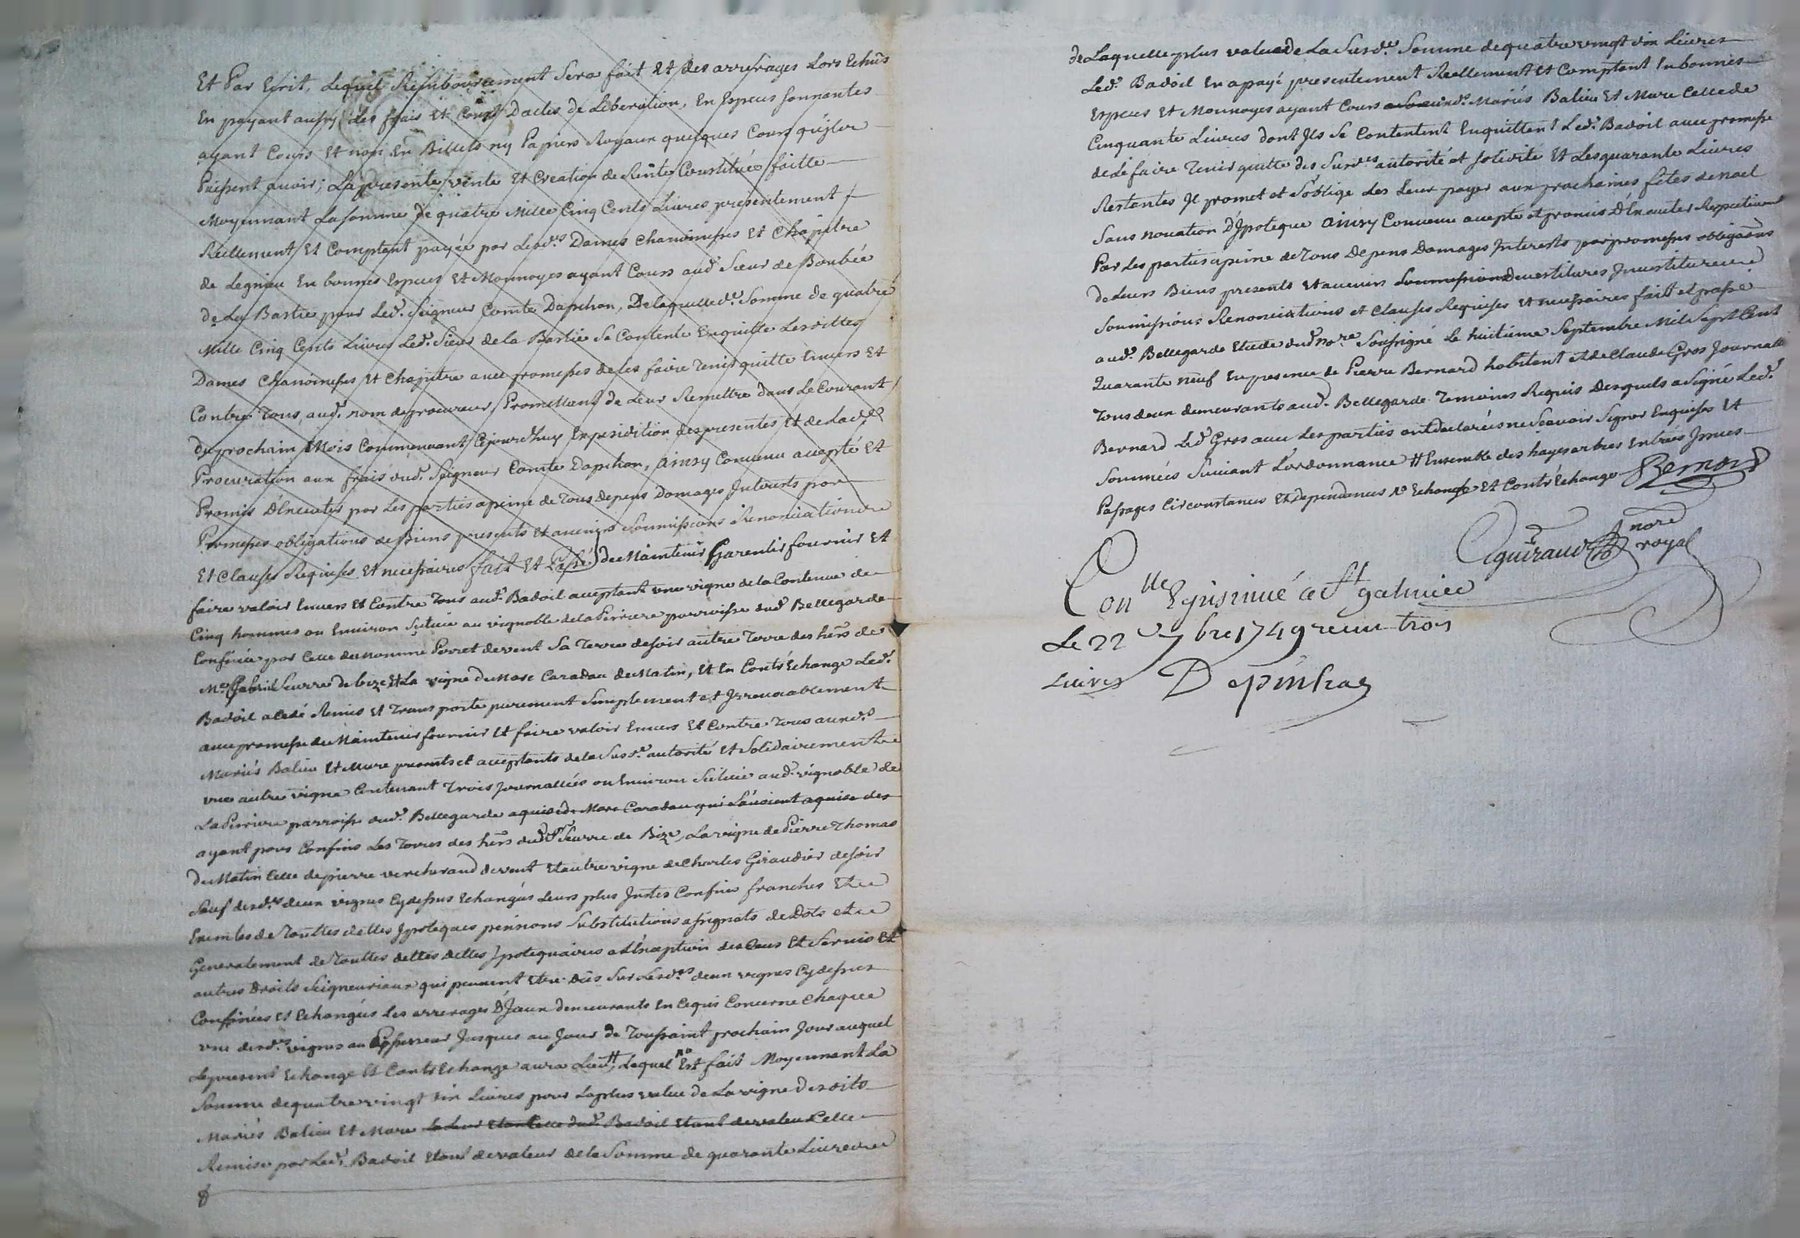 Et Par Ecrit, Lequel Remboursement Sera fait Et des arrerages Lors Echûs
En payant aussy des ffrais Et Coust Dactes de Liberation, En Especes sonnantes
ayant Cours Et non En Billets ny Papiers Royaux quelques Cours qu'ils
Puissent avoir; La presente vente Et Creation de Rente Constituée faitte
Moyennant La somme de quatre Mille Cinq Cents Livres presentement
Reellement Et Comptant payée par Lesd.es Dames Chanoinesses Et Chapitre
de Legnieu En bonnes Especes Et Monnoyes ayant Cours aud. Sieur de Boubée
de La Bastie pour Led. Seigneur Comte Dapchon, De laquelle d.e Somme de quatre
Mille Cinq Cents Livres Led. Sieur de la Bastie Se Contente En quitte Lesdittes
Dames Chanoinesses Et Chapitre avec promesses de les faire Tenir quitte Envers Et
Contre Tous, aud. nom de procureur, Promettant de Leur Remettre dans Le Courant
du prochain Mois Commencant Cejourd'huy Expedition des presentes Et de Lad.e
Procuration aux frais dud. Seigneur Comte Dapchon, ainsy Convenu accepté Et
Promis D'Executer par Les parties a peine de Tous depens Domages Interests par
Promesses obligations de Biens presents Et avenirs Soumissions Renonciations
Et Clauses Requises Et necessaires fait Et Passé de Maintenir Garentir fournir Et
faire valoir Envers Et Contre Tous aud. Badoil acceptant une vigne de la Contenue de
Cinq hommes ou Environ Scituée au vignoble de la Perriere parroisse dud. Bellegarde
Confinée par Celle du nommé Perret de vent Sa Terre de soir autre Terre des hers de
Me Gabriel Seurre de bize Et La vigne de Marc Caradau de Matin, Et En Contr'Echange Led.
Badoil a Cedé Remis Et Transporté purement Simplement et Irrevocablement
avec promesse de Maintenir fournir Et faire valoir Envers Et Contre Tous auxd.s
Mariés Balieu Et Mure presents et acceptants de la Susd.e autorité Et Solidairement
une autre vigne Contenant Trois Journallées ou Environ Scituée aud. vignoble de
La Perriere parroisse dud. Bellegarde aquise de Marc Caradau qui L'avoient aquise des
ayant pour Confins Les Terres des hers dud. Sr Seurre de Bize, La vigne de Pierre Thomas
de Matin Celle de pierre vercherand de vent Et autre vigne de Charles Giraudier de soir
Sauf desd.es deux vignes Cy dessus Echangées Leurs plus Justes Confins franches Et
Exemptes de Touttes dettes Ypoteques pensions Substitutions assignats de Dots et
Generalement de Touttes dettes dettes Ypotequaires a L'Exception des Cens Et Servis Et
autres Droits Seigneuriaux qui peuvent Etre dûs Sur Lesd.es deux vignes Cy dessus
Confinées Et Echangées Les arrerages D'Iceux demeurants En Ce qui Concerne Chaque
une desd.es vignes au Possesseur Jusques au Jour de Toussaint prochain Jour auquel
Le present Echange Et Contr'Echange aura Lieu, # Lequel Est fait Moyennant La
Somme de quatre vingt dix Livres pour La plus value de La vigne desdits
Mariés Balieu Et Mure la Leur Etant Celle dud. Badoil Etant de valeur Celle
Remise par Led. Badoil Etant de valeur de la Somme de quarante Livres
de Laquelle plus value de La Susd.e Somme de quatre vingt dix Livres
Led. Badoil En a payé presentement Reellement Et Comptant En bonnes
Especes Et Monnoyes ayant Cours auxd. Mariés Balieu Et Mure Celle de
Cinquante Livres dont Ils Se Contentent En quittent Led. Badoil avec promesse
de Le faire Tenir quitte des Susd.es autorité et solidité Et Les quarante Livres
Restantes Il promet et S'oblige des Leur payer aux prochaines fêtes de noel
Sans novation D'Ypoteque ainsy Convenu accepté et promis D'Executer Respectivement
Par Les parties a peine de Tous Depens Domages Interests par promesses obligaõns
de Leurs Biens presents Et avenirs Soumissions Devestitures Investitures
Soumissions Renonciations et Clauses Requises Et necessaires fait et passé
aud. Bellegarde Etude dud. nore Soussigné Le huitieme Septembre Mil Sept Cent
Quarante neuf En presence de Pierre Bernard habitant et de Claude Gros Journallier
Tous deux demeurants aud. Bellegarde Temoins Requis Desquels a Signé Led.
Bernard Led. Gros avec Les parties ont declarés ne Scavoir Signer Enquises Et
Sommées Suivant L'ordonnance # Ensemble des hayes arbres Entrées Issues
Passages Circonstances Et dependances No Echange Et Contr'Echange Bernard
Aguiraud nore royal
Con lle Et insinué a St galmier
Le 22e 7bre 1749 recu trois
Livres Depinhac